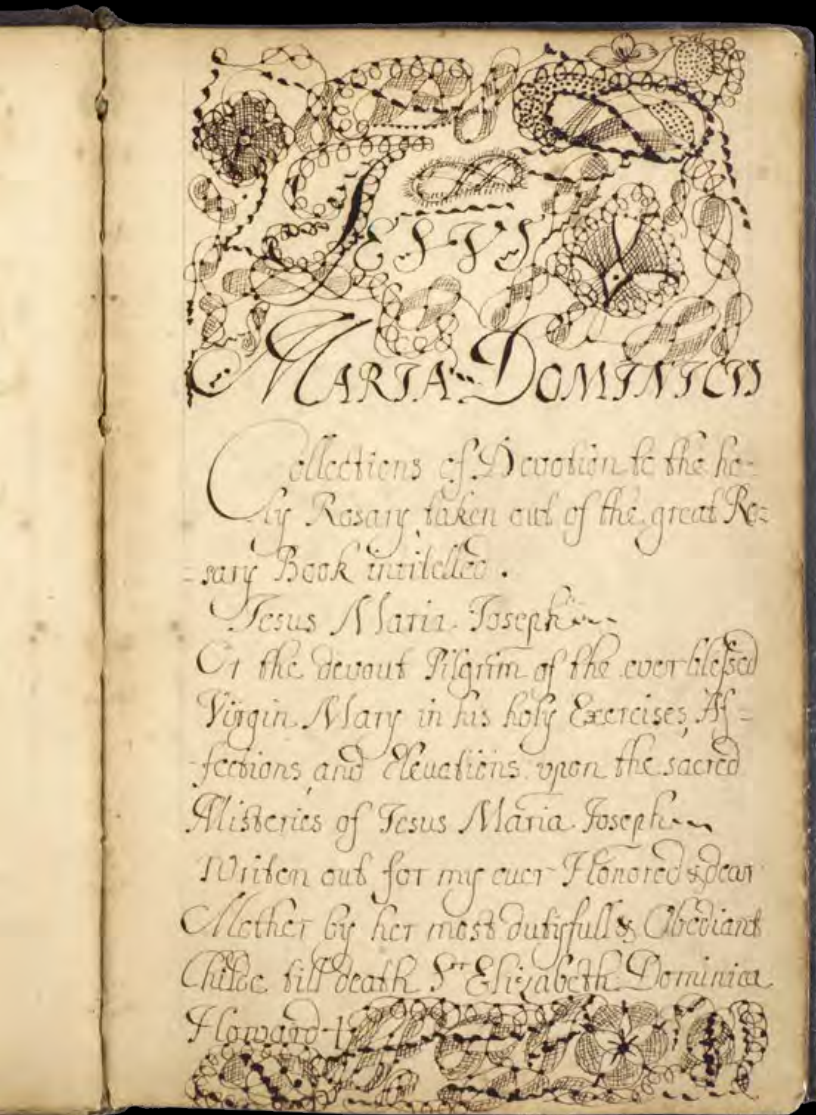 IESVS
MARIA DOMINICUS
Collections of Devotion to the ho-
ly Rosary taken out of the great Ro=
=sary Book intitelled.
Iesus Maria Ioseph
Or the devout Pilgrim of the ever blessed
Virgin Mary in his holy Exercises, Af=
-fections, and Elevations, vpon the sacred
Misteries of Iesus Maria Ioseph
Writen out for my euer Honored & dear
Mother by her most dutyfull & Obediant
Childe till death Sr Elizabeth Dominica
Howard